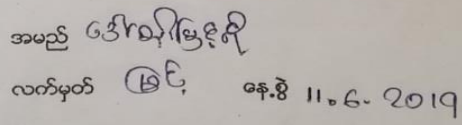 အမည် ဒေါ်ခင်မြင့်စို
လက်မှတ် မြင့် နေ့စွဲ 11.6.2019